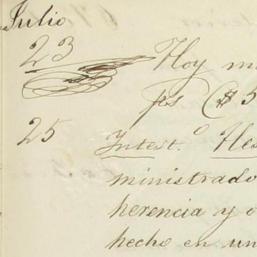 Julio
23 Hoy m
ps ($5
25 Intest.º Hes
ministrado
herencia y o
hecho en un